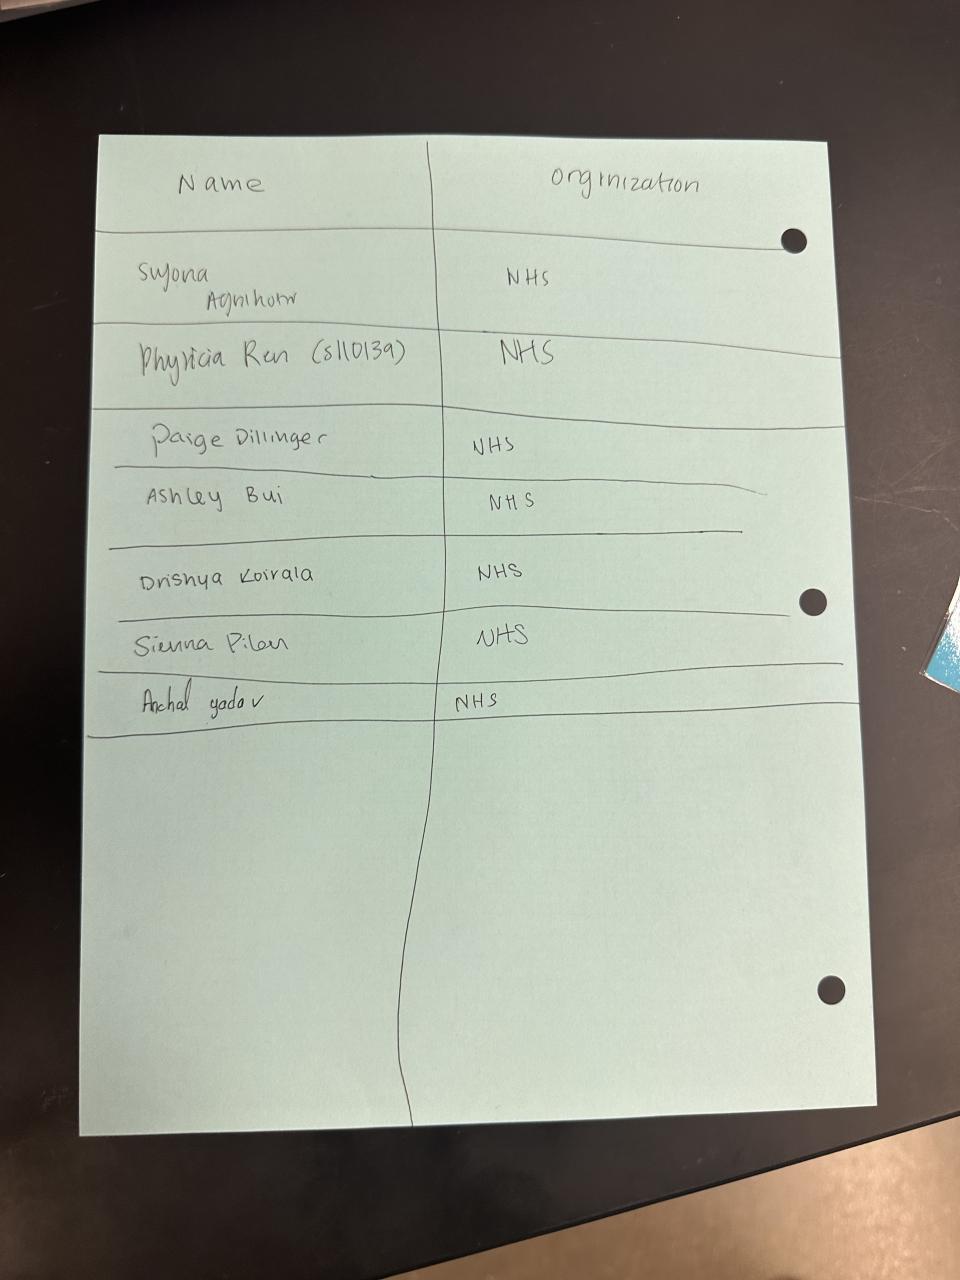 Name orginization
Suyona NHS
Agnihotri
Phyricia Ren (s110139) NHS
Paige Dillinger NHS
Ashley Bui NHS
Drishya Koirala NHS
Sienna Pilon NHS
Anchal yadav NHS